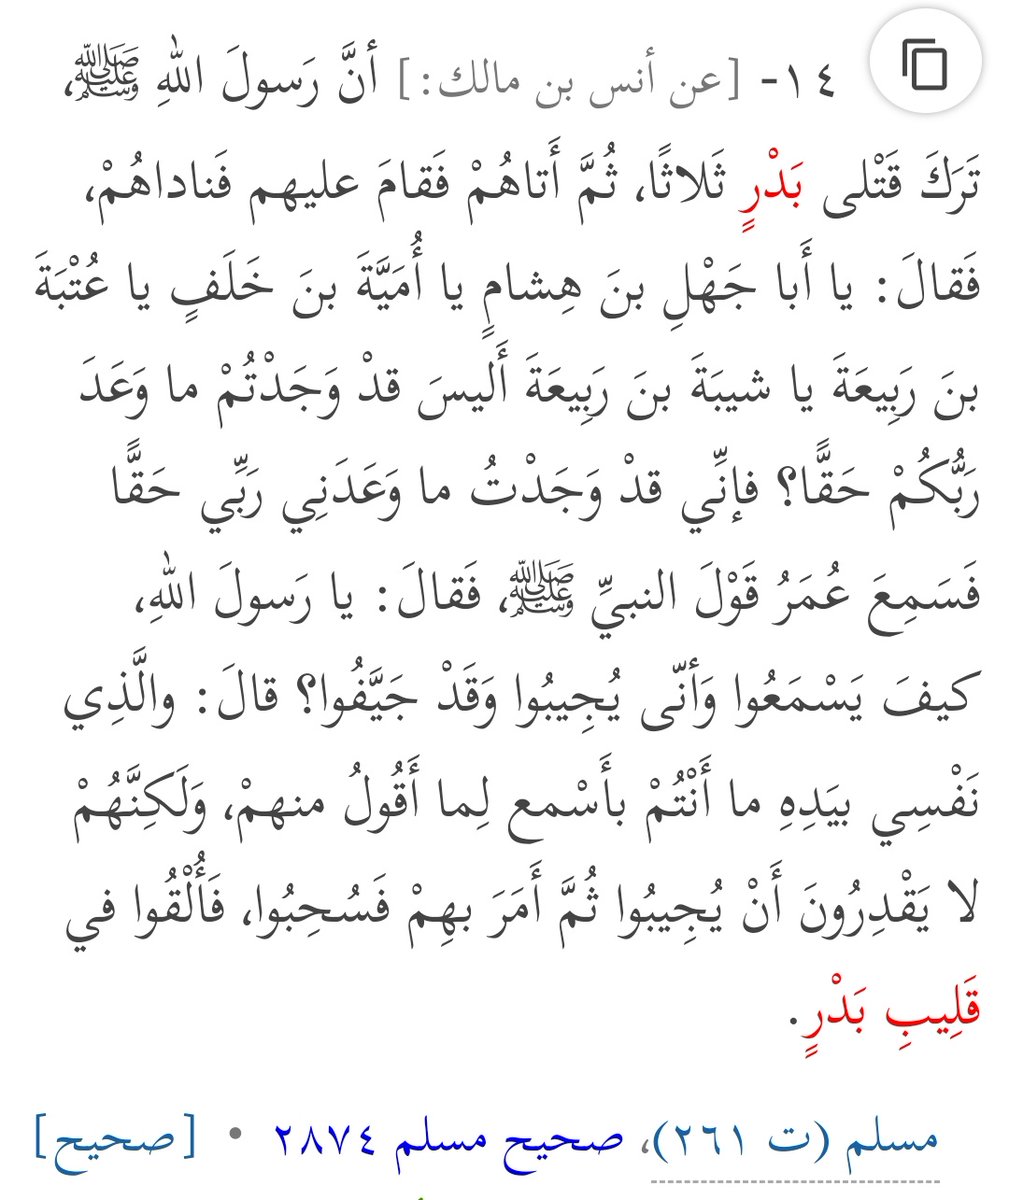 ١٤- [عن أنس بن مالك:] أنَّ رَسولَ اللهِ ﷺ،
تَرَكَ قَتْلى بَدْرٍ ثَلاثًا، ثُمَّ أَتاهُمْ فَقامَ عليهم فَناداهُمْ،
فَقالَ: يا أَبا جَهْلِ بنَ هِشامٍ يا أُمَيَّةَ بنَ خَلَفٍ يا عُتْبَةَ
بنَ رَبِيعَةَ يا شيبَةَ بنَ رَبِيعَةَ أَليسَ قدْ وَجَدْتُمْ ما وَعَدَ
رَبُّكُمْ حَقًّا؟ فإنِّي قدْ وَجَدْتُ ما وَعَدَنِي رَبِّي حَقًّا
فَسَمِعَ عُمَرُ قَوْلَ النبيِّ ﷺ، فَقالَ: يا رَسولَ اللهِ،
كيفَ يَسْمَعُوا وَأنّى يُجِيبُوا وَقَدْ جَيَّفُوا؟ قالَ: والَّذِي
نَفْسِي بيَدِهِ ما أَنْتُمْ بأَسْمع لِما أَقُولُ منهمْ، وَلَكِنَّهُمْ
لا يَقْدِرُونَ أَنْ يُجِيبُوا ثُمَّ أَمَرَ بهِمْ فَسُحِبُوا، فَأُلْقُوا في
قَلِيبِ بَدْرٍ.
مسلم (ت ٢٦١)، صحيح مسلم ٢٨٧٤ • [صحيح]